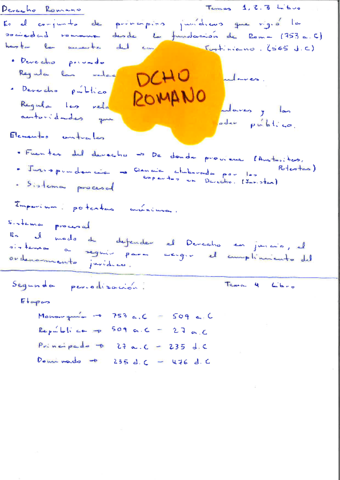 Derecho Romano Temas 1, 2, 3 Libro
Es el conjunto de principios jurídicos que rigió la
sociedad romana desde la fundación de Roma (753 a.C)
hasta la muerte del Justiniano. (565 d.C)
• Derecho privado
Regula las ulares.
• Derecho público
Regula las ulares y los
autoridades que oder público.
DCHO
ROMANO
Elementos centrales
• Fuentes del derecho → De donde proviene (Auctoritas.
Potestas)
• Jurisprudencia → Ciencia elaborada por los
expertos en Derecho. (Iuristas)
• Sistema procesal
Imperium: potestas máxima.
Sistema procesal
Es el modo de defender el Derecho en juicio, el
sistema a seguir para exigir el cumplimiento del
ordenamiento jurídico.
Segunda periodización: Tema 4 Libro
Etapas
Monarquía → 753 a.C - 509 a C
República → 509 a.C - 27 a.C
Principado → 27 a.C - 235 d.C
Dominado → 235 d.C - 476 d.C